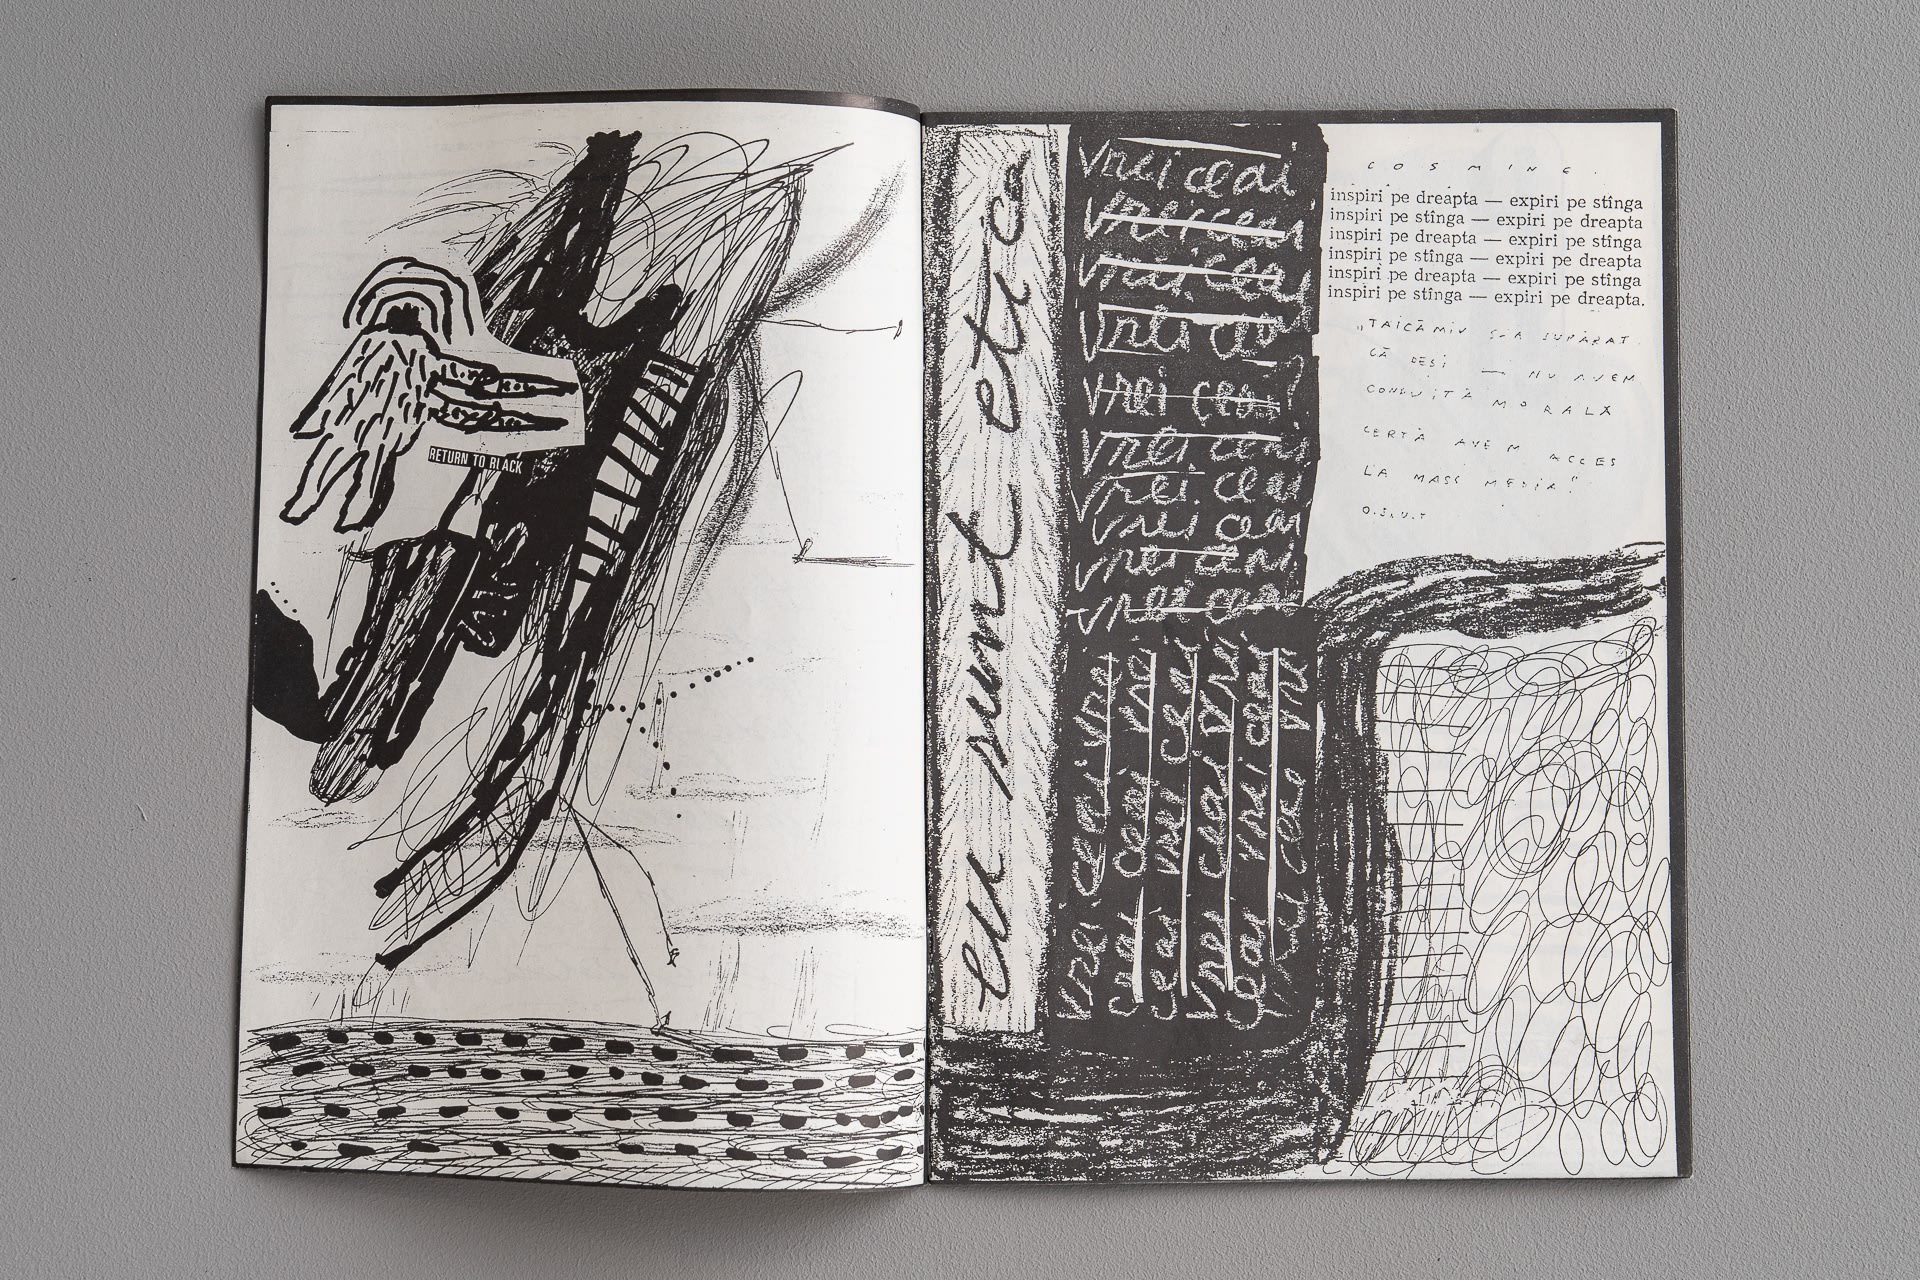 RETURN TO BLACK
eu sunt etica
vrei ceai
vrei ceai
vrei ceai
vrei ceai
vrei ceai?
vrei ceai
vrei ceai
vrei ceai
vrei ceai
vrei ceai
COSMINE.
inspiri pe dreapta — expiri pe stînga
inspiri pe stînga — expiri pe dreapta
inspiri pe dreapta — expiri pe stînga
inspiri pe stînga — expiri pe dreapta
inspiri pe dreapta — expiri pe stînga
inspiri pe stînga — expiri pe dreapta.
„TAICĂMIU S-A SUPĂRAT
CĂ DEȘI — NU AVEM
CONDUITĂ MORALĂ
CERTĂ AVEM ACCES
LA MASS MEDIA!"
vrei ceai vrei
ceai ceai vrei
ceai vrei ceai
vrei ceai vrei
ceai vrei ceai
vrei ceai vrei